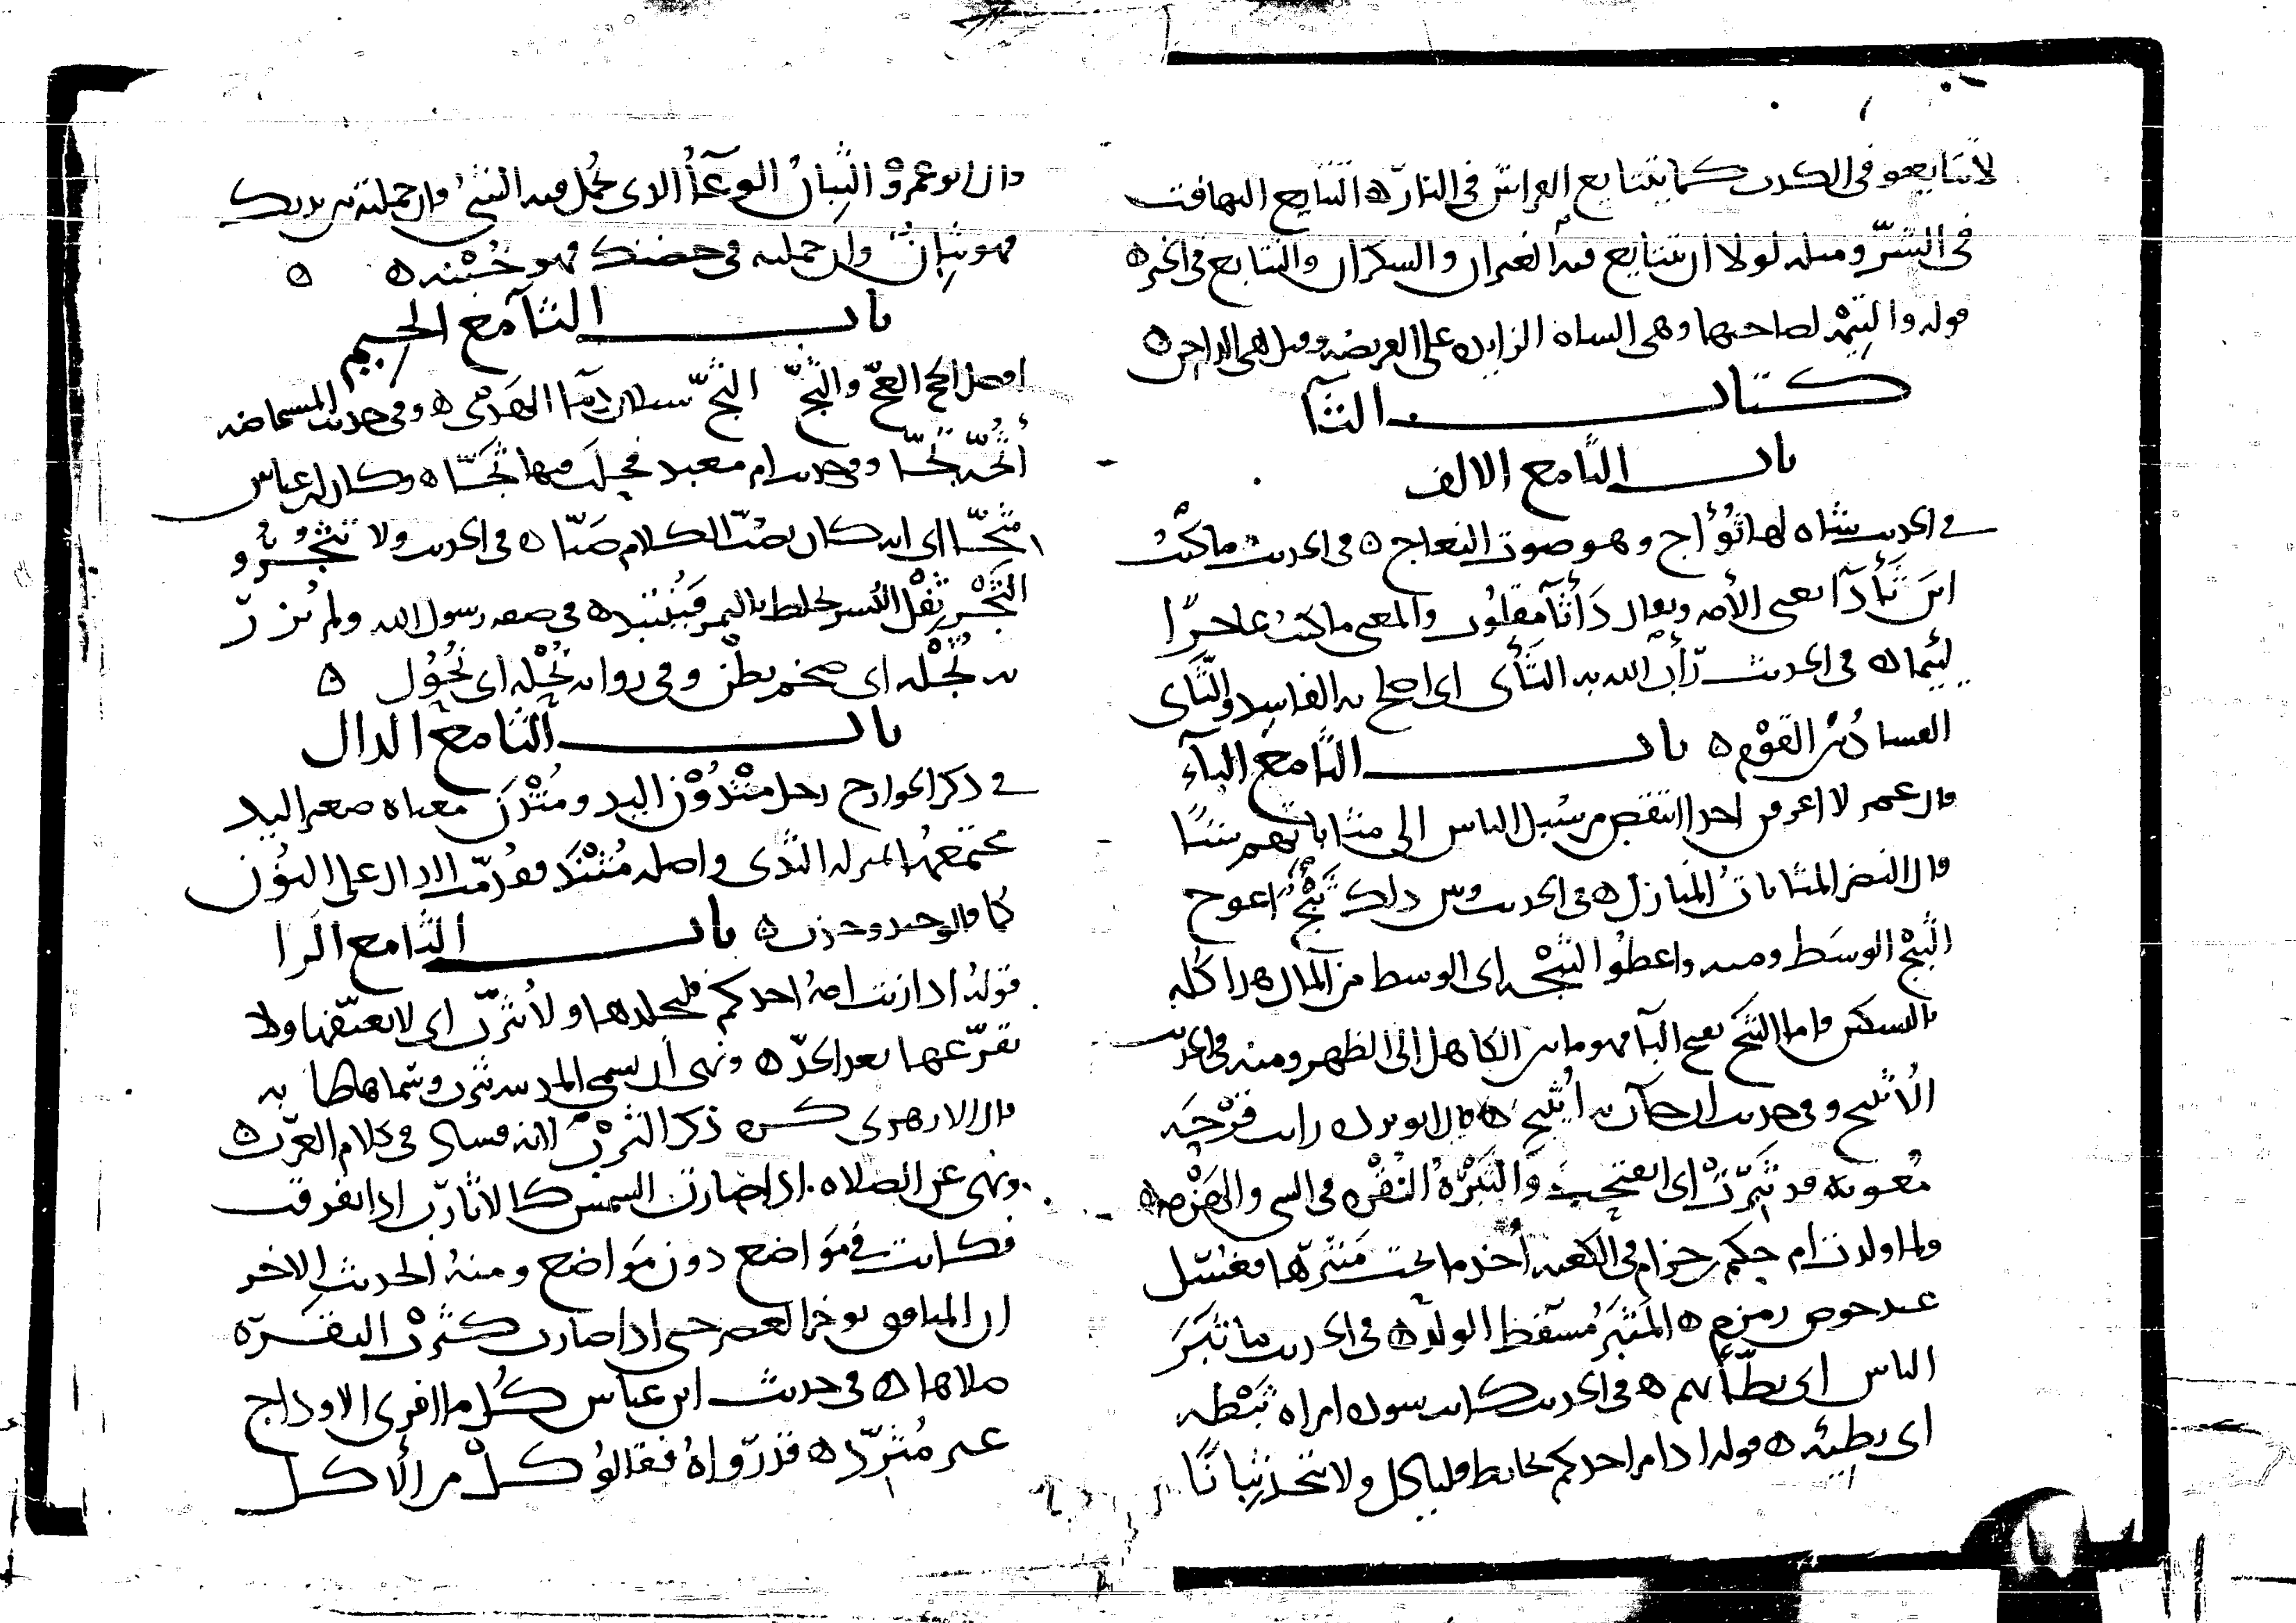 لا تتايعوا في الكذب كما يتتايع الفراش في النار ه التتايع التهافت
في الشر ومثله لولا ان يتتايع فيه الغيران والسكران والتتابع في الخير ه
قوله والتيمة لصاحبها وهي الشاة الزايدة على الفريضة وقيل هي الداجن ه
كتاب الثآ
باب الثا مع الالف
في الحديث شاة لها ثُؤَاج وهو صوت النعاج ه في الحديث ما كنتُ
ابنَ ثَأْدَآ يعني الأمه ويقال دَأْثآ مقلوب والمعنى ما كنت عاجزًا
لئيمًا ه في الحديث رَأَبَ الله به الثَّأَى اى اصلح به الفاسد والثَّاى
الفساد بين القوْم ه باب الثا مع البآء
قال عمر لا اعرفن احدا انتقص من سُبل الناس الى مثاباتهم شيئًا
قال النضر المثابات المنازل ه في الحديث وبين ذلك ثَبْجٌ اعوج
الثَبْج الوسَط ومنه واعطُوا الثبْجه اى الوسط من المال هذا كله
بالتسكين واما الثبَج بفتح البآ فهو ما بين الكاهل الى الظهر ومنه في الحديث
الأثبج وفي حديث ان جآت به أُثَيبج ه قال ابو بردة رايت قَرْحَة
مُعوية قد ثَبَرَتْ اى انفتحت والثَبْرةُ النُقْره في الشي والهَزْمه ه
ولما ولدت ام حكيم بن حزام في الكعبة أُخذ ما تحت مَثْبَرها فغُسّل
عند حوض زمزم ه المَثْبَرُ مَسْقط الولد ه في الحديث ما ثبَرَ
الناس اى بطّأ بهم ه في الحديث كانت سودة امراة ثَبْطة
اى بطيئه ه قوله اذا مر احدكم بحائط فلياكل ولا يتخذ ثِبانًا
قال ابو عمرو الثِبانُ الوعآء الذى يُحمل فيه الشيُ فان حملته بين يديك
فهو ثِبانٌ وان حملته في حضنك فهو خُبْنه ه ه
باب الثآ مع الجيم
افضل الحج العجّ والثجّ الثجّ سيلان دمآ الهَدْي ه وفي حديث المستحاضه
أَثُجُّه ثجًّا وفي حديث ام معبد فحلب فيها ثَجًّا ه وكان ابن عباس
مثجًّا اى انه كان يصُبّ الكلام صَبّا ه في الحديث ولا تَثْجُرُوا
الثَجْر ثِفْل البُسر يخلط بالتمر فيُنْتَبذ ه في صفه رسول الله ولم تُزر
به ثُجْلة اى ضخم بطْن وفي رواية نُحْلة اى نُحُول ه
باب الثا مع الدال
في ذكر الخوارج رجل مَثْدُوْن اليد ومُثْدَن معناه صغير اليد
مجتمعُها بمنزله الثَدْى واصله مُثْنَد فقدّمت الدال على النُون
كما قالوا جبذ وجذب ه باب الثا مع الرا
قوله اذا زنت امةُ احدكم فليجلدها ولا يُثرّب اى لا يعنّفها ولا
يقرّعها بعد الحدّ ه ونهى أن يسمى المدينه يثرب وسماها طابه
قال الازهرى كره ذكر الثَرْب لانه فساد في كلام العرَب ه
ونهى عن الصلاه اذا صارت الشمس كالاثارب اذا تفرقت
فكانت في مَواضع دون مَواضع ومنهُ الحديث الاخر
ان المنافق يوخر العصر حتى اذا صارت كثَرْب البقَرة
صلاها ه في حديث ابن عباس كُل ما افرى الاوداج
غير مُثَرّد ه قد رَوَاهُ فقالوُ كُلْ من الأكل